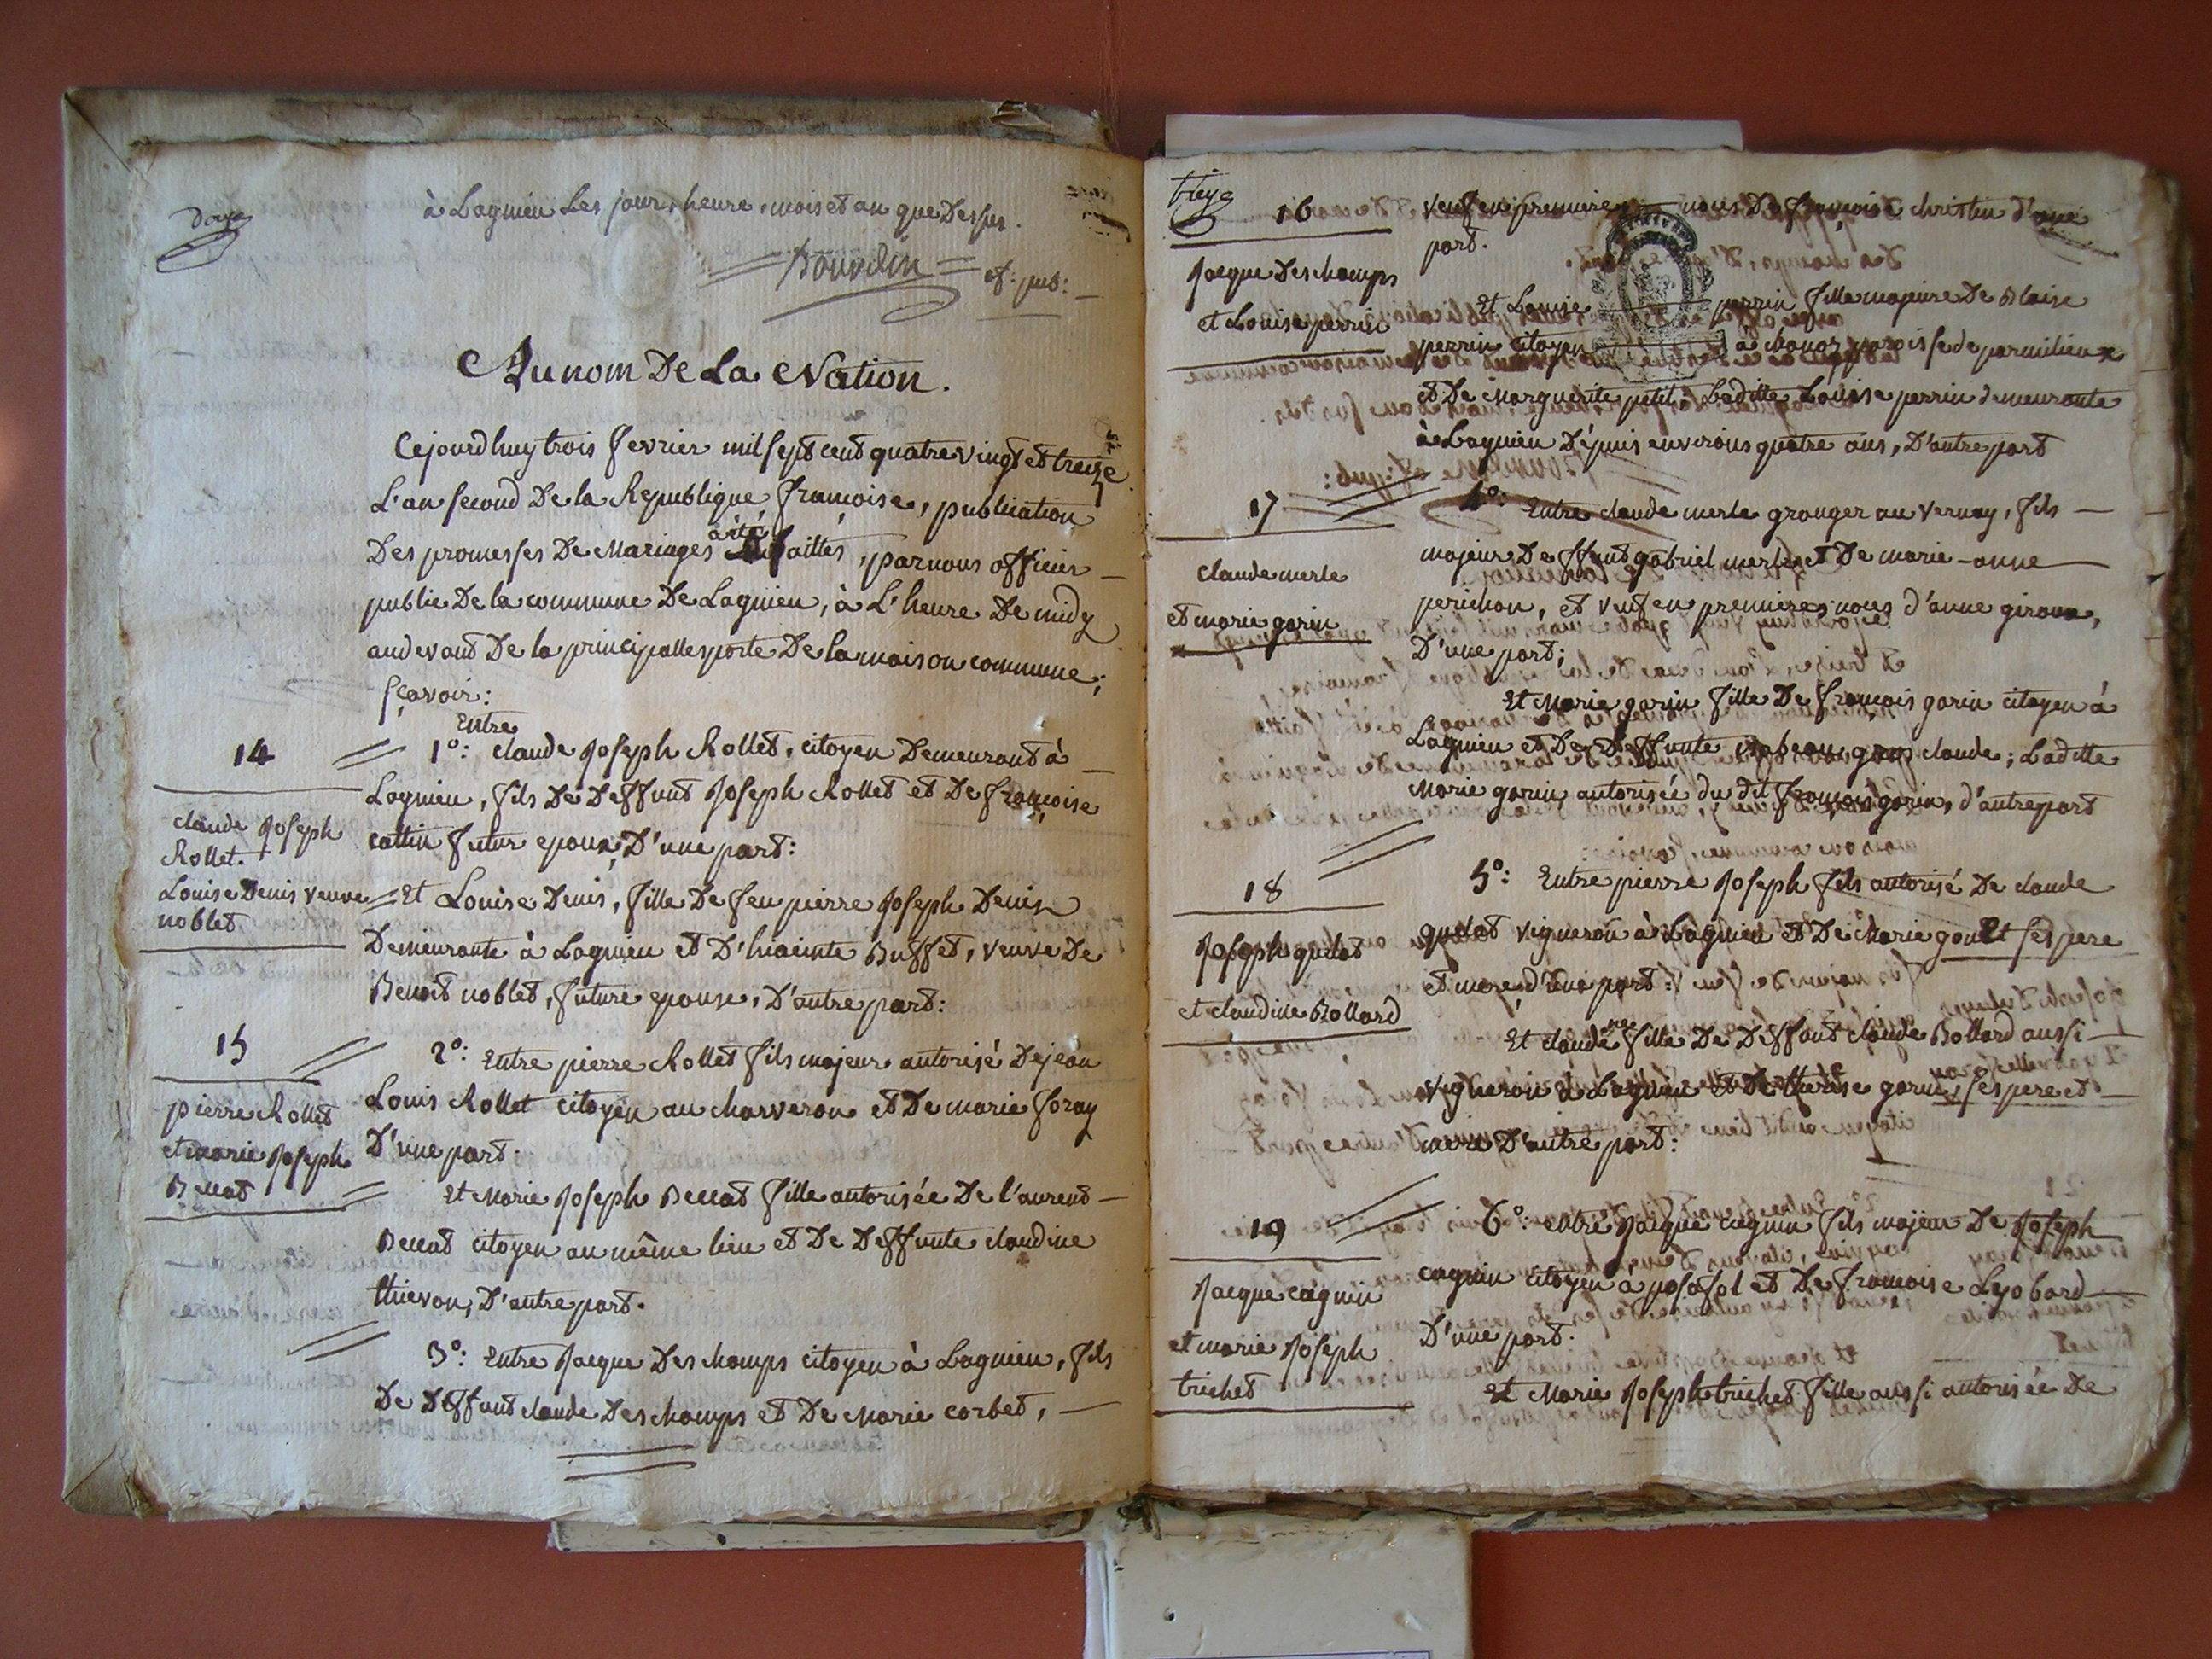 à Lagnieu Les jour, heure, mois et an que Dessus.
Bourdin of: pub:
Au nom De La Nation.
Cejourd'huy trois fevrier mil sept cent quatre vingt et treize
L'an second De la Republique francoise, publication
Des promesses De Mariages a été faittes, par nous officier
public De la commune De Lagnieu, à L'heure De midy
audevant De la principalle porte De la maison commune;
sçavoir:
Entre
14
1º: claude Joseph Rollet, citoyen Demeurant à
Lagnieu, fils De Deffunt Joseph Rollet et De françoise
cattin futur epoux, D'une part:
claude Joseph
Rollet.
Louise Denis veuve
noblet
Et Louise Denis, fille De feu pierre Joseph Denis
Demeurante à Lagnieu et D'hiacinte Buffet, veuve De
Benoit noblet, future epouse, D'autre part:
15
2º: Entre pierre Rollet fils majeur autorisé De jean
Louis Rollet citoyen au charveron et De marie foray
D'une part.
pierre Rollet
et marie Joseph
Et Marie Joseph fille autorisée De l'aurent
citoyen au même lieu et De Deffunte claudine
thievon, D'autre part.
3º: Entre Jacque Deschamps citoyen à Lagnieu, fils
De Deffunt claude Deschamps et De Marie corbet,
16
veuf en premieres noces De françoise christin d'une
part.
Jacque Deschamps
et Louise perrin
Et Louise perrin fille majeure De Blaise
perrin citoyen à paroisse de parmilieux
et De Marguerite petit; Laditte Louise perrin demeurante
à Lagnieu Dépuis environs quatre ans, D'autre part
17
4º: Entre claude merle granger au vernay, fils
majeur De ffunt gabriel merle et De marie-anne
perichon, et veuf en premieres noces d'anne giroux,
D'une part;
claude merle
et marie garin
Et Marie garin fille De françois garin citoyen à
Lagnieu et De Deffunte claude; Laditte
Marie garin autorisée du dit françois garin, d'autre part
18
5º: Entre pierre Joseph fils autorisé De claude
quelat vigneron à Lagnieu et De Marie ses pere
et mere d'une part:
Joseph quelat
et claudine Bollard
Et claudine fille De Deffunt claude Bollard aussi
vigneron à Lagnieu et De therese garin, ses pere et
mere D'autre part:
19
6º: entre Jacque cagnin fils majeur De Joseph
cagnin citoyen à posafol et De françoise Lyobard
D'une part.
Jacque cagnin
et marie Joseph
trichet
Et Marie Joseph trichet fille aussi autorisée De